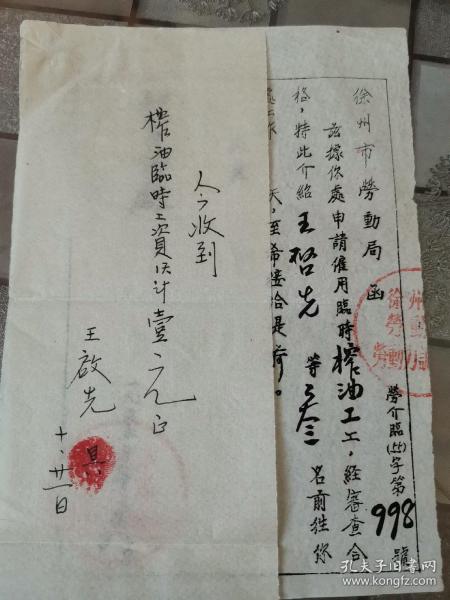 徐州市勞動局 函
勞介臨(55)字第998號
茲據你處申請僱用臨時榨油工工,經審查合
格,特此介紹王啓先等叁名前往你
天,至希接洽是荷。
徐州
勞動局
今收到
榨油臨時工資1天計壹元正
王啟先
十、廿一日
孔夫子旧书网
www.kongfz.com